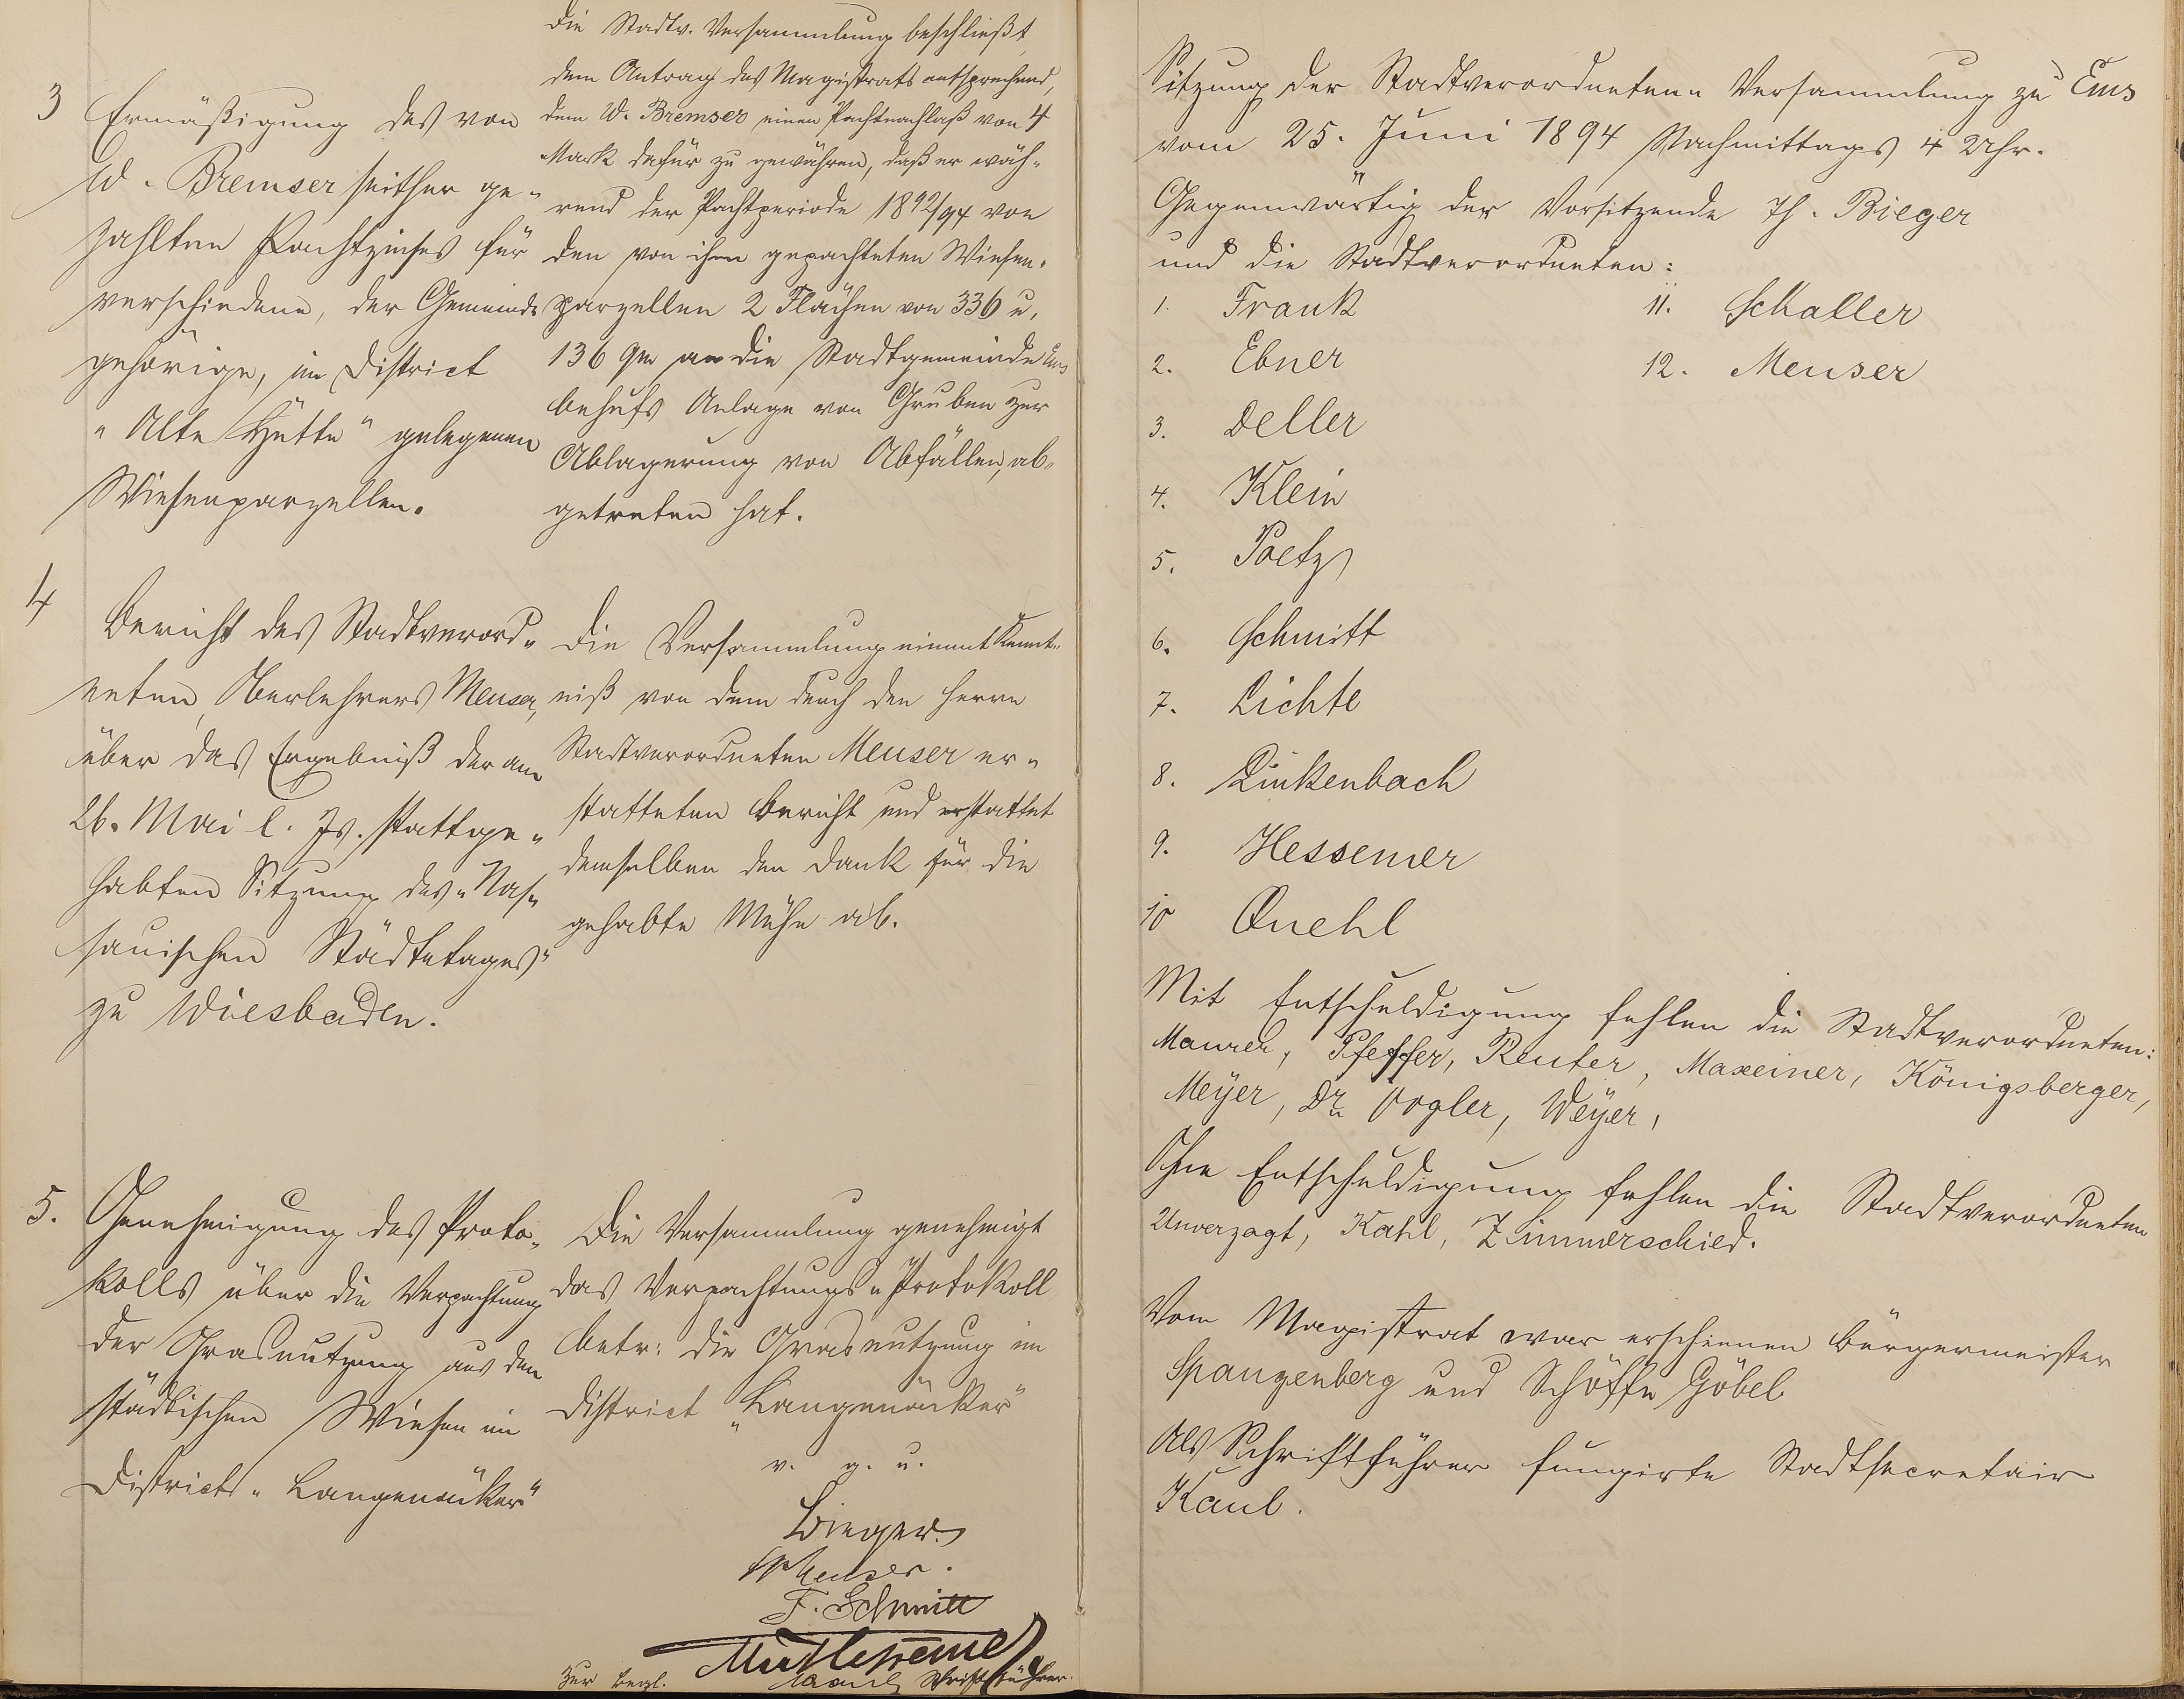 3
Ermäßigung des von
W. Bremser seither ge-
zahlten Pachtzinses für
verschiedene, der Gemeinde
gehörige, im District
"Alte Hütte" gelegenen
Wiesenparzellen.
Die Stadtv. Versammlung beschließt,
dem Antrag des Magistrats entsprechend,
dem W. Bremser einen Pachtnachlaß von 4
Mark dafür zu gewähren, daß er wäh-
rend der Pachtperiode 1892/94 von
den von ihm gepachteten Wiesen-
parzellen 2 Flächen von 336 u.
136 qm an die Stadtgemeinde Ems
behufs Anlage von Gruben zur
Ablagerung von Abfällen, ab-
getreten hat.
4
Bericht des Stadtverord-
neten, Oberlehrers Meuser,
über das Ergebniß der am
26. Mai l. Js. stattge-
habten Sitzung des "Nas-
sauischen Städtetages"
zu Wiesbaden.
Die Versammlung nimmt Kennt-
niß von dem durch den Herrn
Stadtverordneten Meuser er-
statteten Bericht und erstattet
demselben den Dank für die
gehabte Mühe ab.
5.
Genehmigung des Proto-
kolls über die Verpachtung
der Grasnutzung aus den
städtischen Wiesen im
District "Langenäcker"
Die Versammlung genehmigt
das Verpachtungs-Protokoll
betr: die Grasnutzung im
District "Langenäcker"
v. g. u.
Bieger
Meuser.
F. Schmitt
Zur Begl. Kaul Schriftführer.
Sitzung der Stadtverordneten-Versammlung zu Ems
vom 25. Juni 1894 Nachmittags 4 Uhr.
Gegenwärtig der Vorsitzende Th. Bieger
und die Stadtverordneten:
1. Frank
2. Ebner
3. Deller
4. Klein
5. Poetz
6. Schmitt
7. Lichte
8. Linkenbach
9. Hessemer
10 Quehl
11. Schaller
12. Meuser
Mit Entschuldigung fehlen die Stadtverordneten:
Maurer, Pfeffer, Reuter, Maxeiner, Königsberger,
Meyer, Dr. Vogler, Weyer,
Ohne Entschuldigung fehlen die Stadtverordneten
Unverzagt, Kahl, Zimmerschied.
Vom Magistrat war erschienen Bürgermeister
Spangenberg und Schöffe Göbel
Als Schriftführer fungirte Stadtsecretair
Kaul.